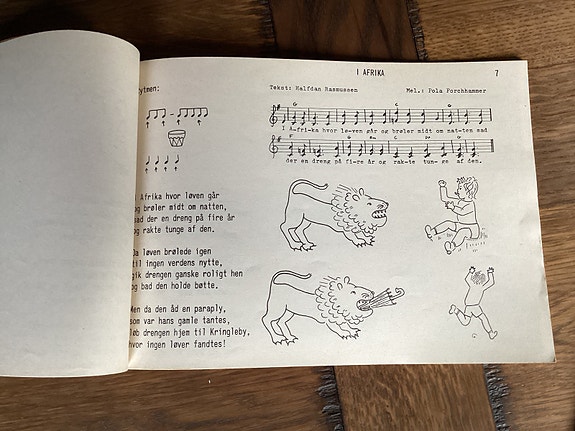 I AFRIKA
7
ytmen:
Tekst: Halfdan Rasmussen
Mel.: Pola Forchhammer
G C G
I A-fri-ka hvor lø-ven går og brøler midt om nat-ten sad
der en dreng på fi-re år og rak-te tun-ge af dem.
Afrika hvor løven går
g brøler midt om natten,
sad der en dreng på fire år
g rakte tunge af den.
Da løven brølede igen
til ingen verdens nytte,
gik drengen ganske roligt hen
og bad den holde bøtte.
Men da den åd en paraply,
som var hans gamle tantes,
løb drengen hjem til Kringleby,
hvor ingen løver fandtes!